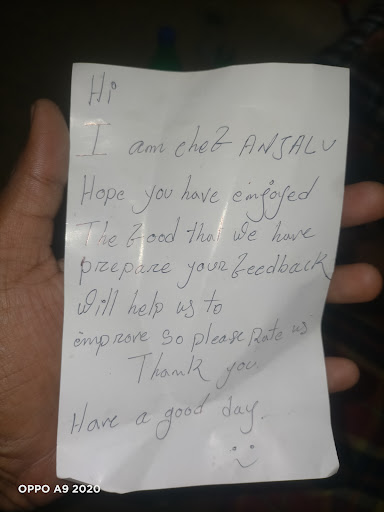 Hi
I am chef ANJALU
Hope you have eingoyed
The food that we have
prepare your feedback
will help us to
improve so please Rate us
Thank you
Have a good day...
OPPO A9 2020